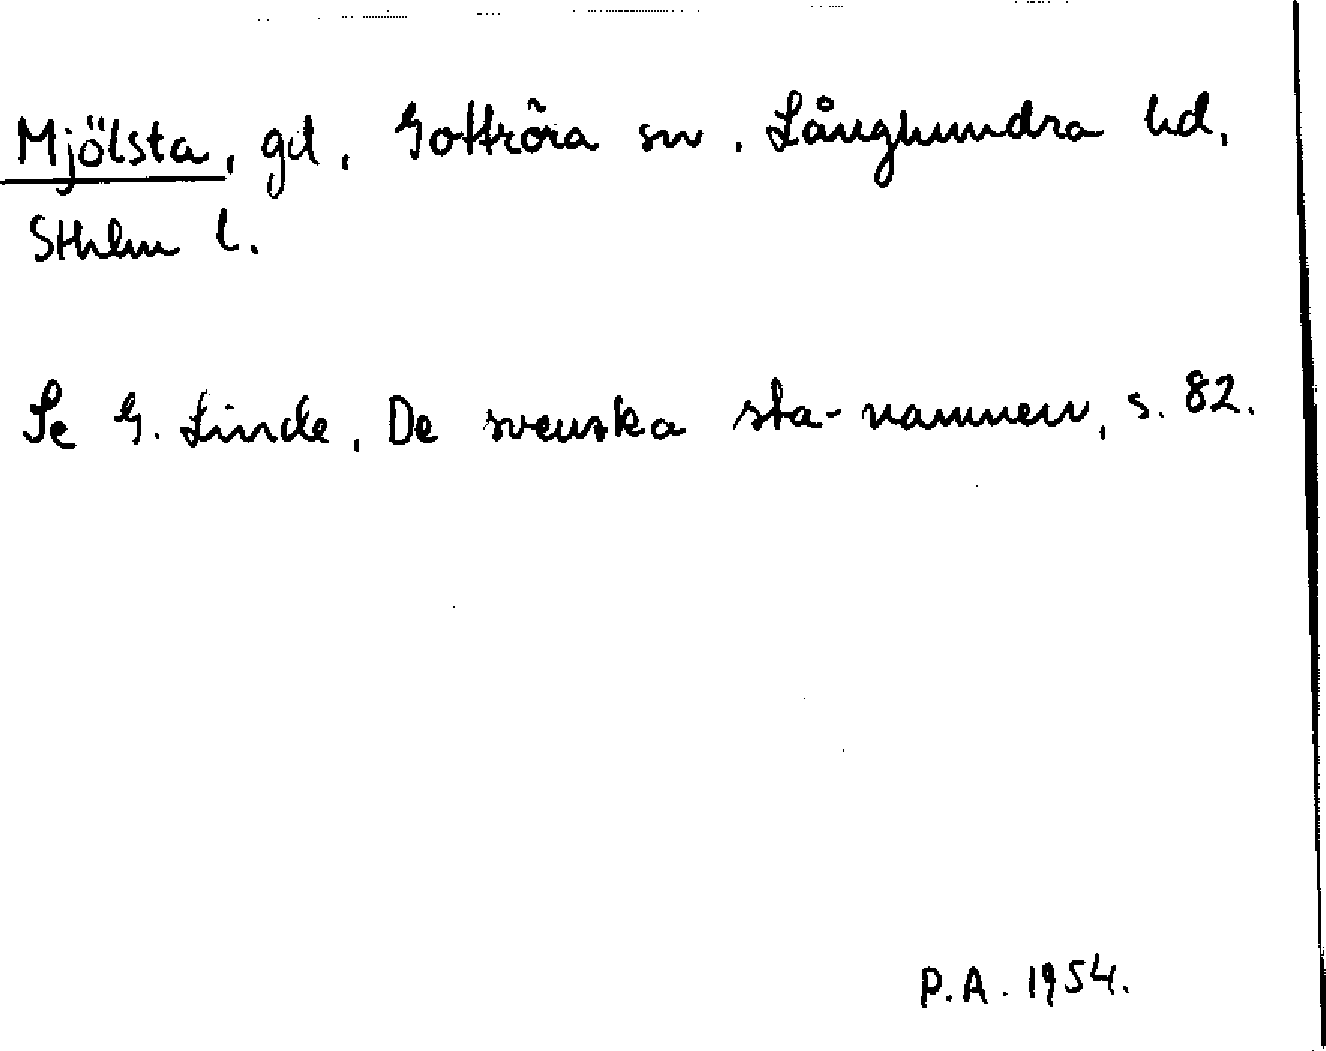 Mjölsta, gd, Gottröra sn, Långhundra hd,
Sthlm l.
Se G. Linde, De svenska sta-namnen, s. 82.
P.A. 1954.